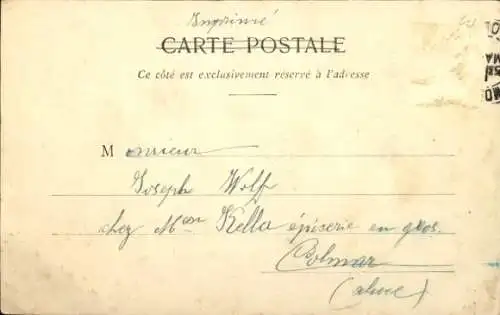 Imprimé
CARTE POSTALE
Ce côté est exclusivement réservé à l'adresse
Monsieur
Joseph Wolf
chez Mson Kella épicerie en gros.
Colmar
(alsace)